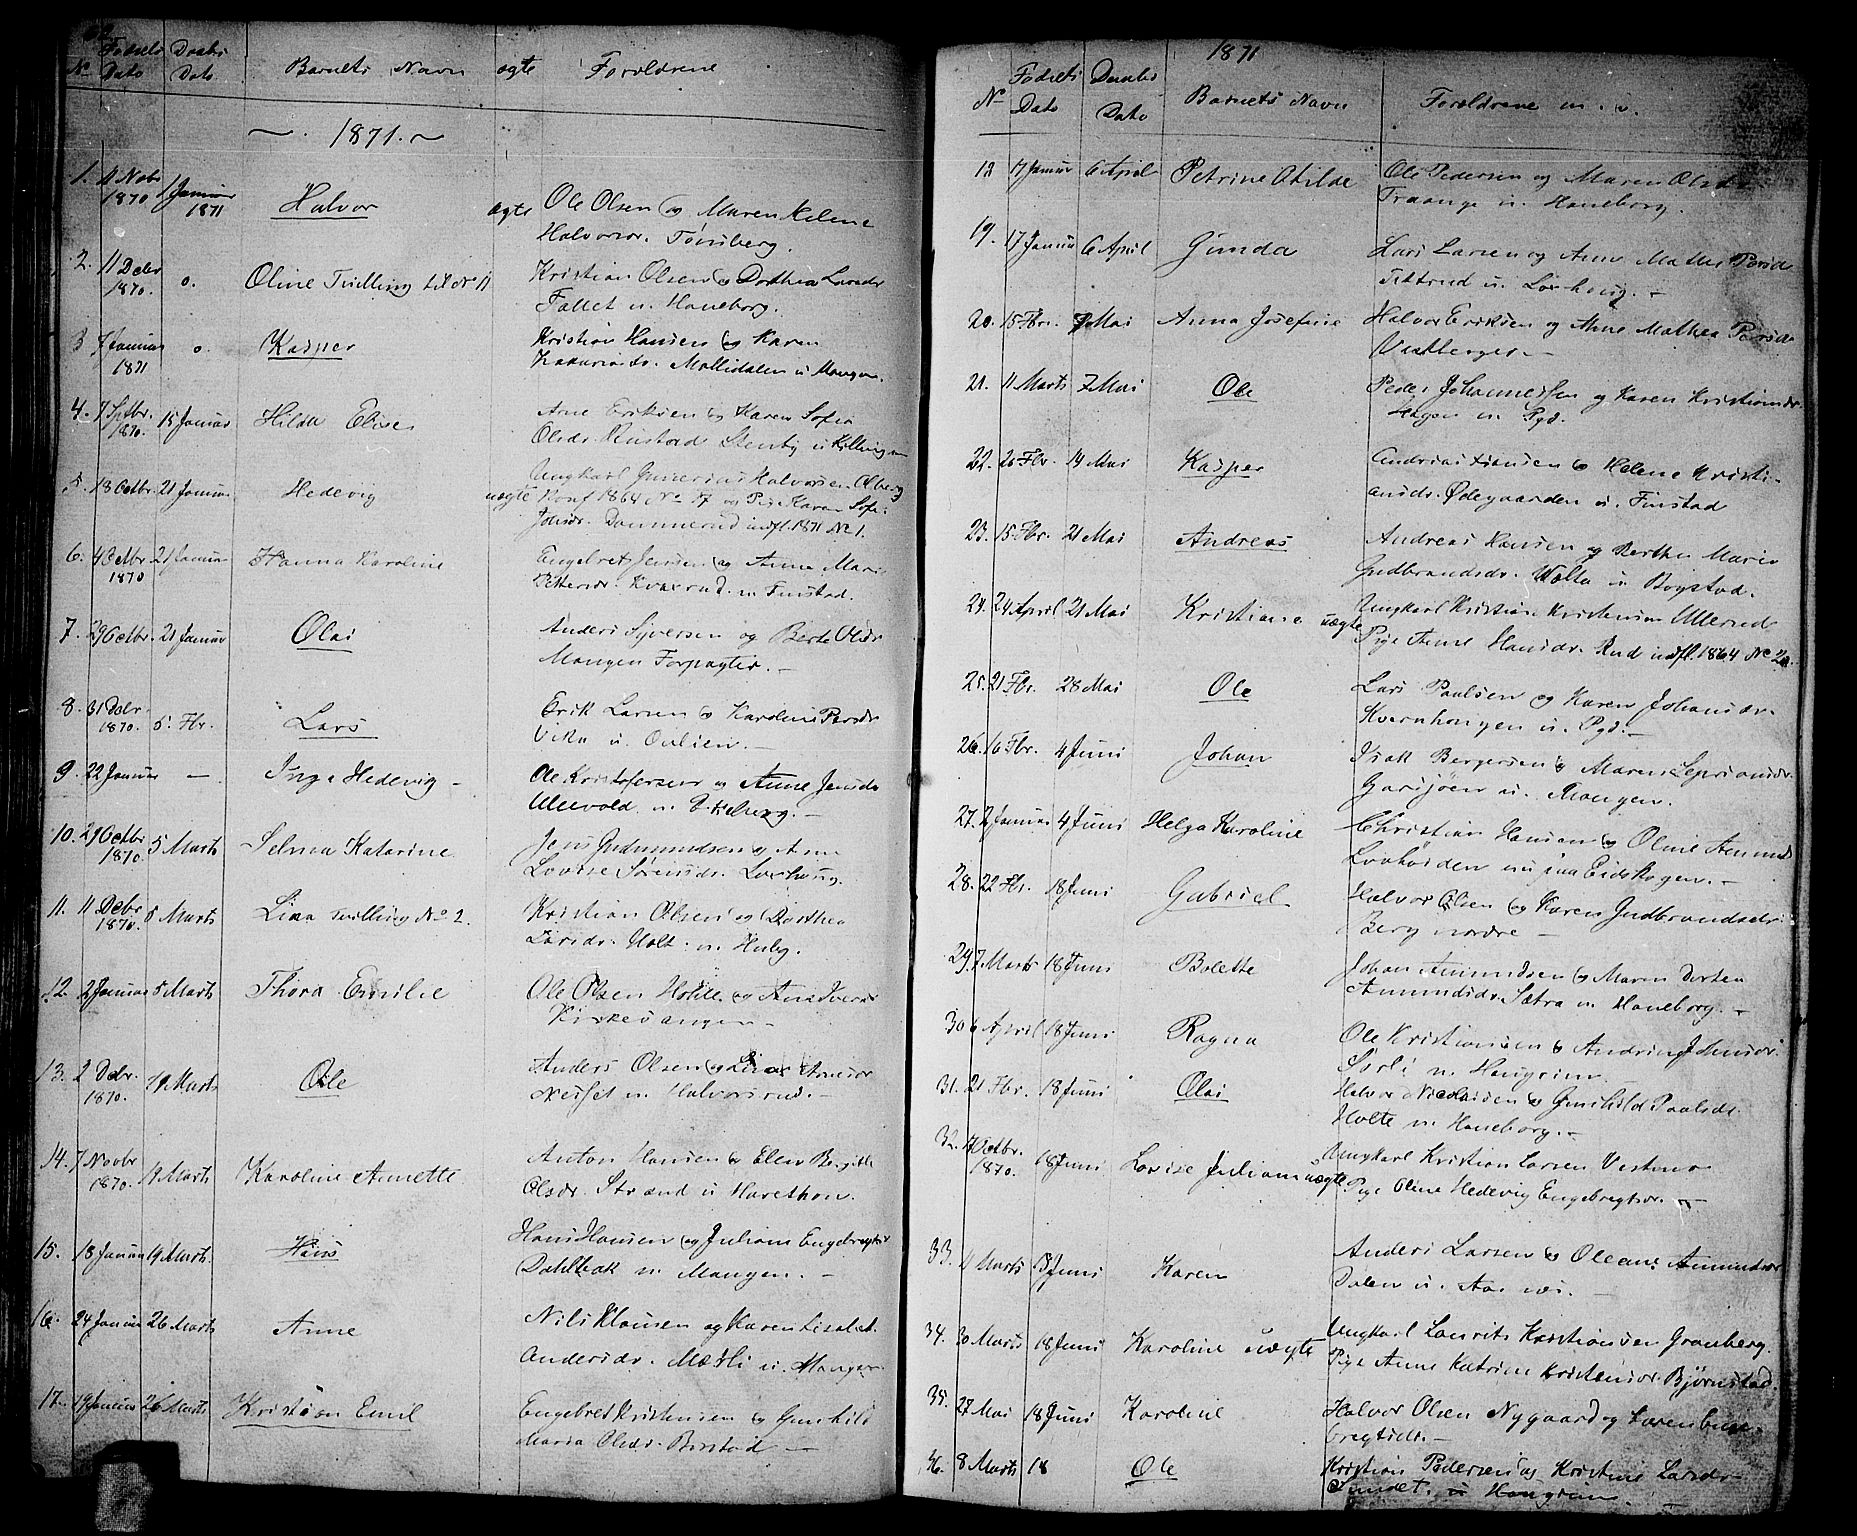 No Fødsels Dato Daabs Dato Barnets Navn ægte Forældrene
1871.
1. Novbr 1870 1 Januar 1871 Halvor ægte Ole Olsen og Maren Helene
Halvorsdr. Tønsberg.
2. 11 Debr 1870. o. Oline Tvilling til No 11 Kristian Olsen og Dorthea Larsdr
Fallet u. Haneborg.
3 Januar 1871 o. Kasper Kristian Hansen og Karen
Zakariasdr. Mallisdalen u Mangen.
4. 7 Sptbr. 1870. 15 Januar Hilda Elise Arne Eriksen og Karen Sofia
Olsdr. Finstad Stenby u
5. 18 Octbr. 21 Januar Hedevig uægte Ungkarl Halvorsen
Konf 1864 No 17 og Pige Karen Sofie
Johsdr. Dammerud indfl. 1871 No 1.
6. 4 Octbr. 1870 21 Januar Hanna Karoline Engebret Jensen og Anne Marie
Pettersdr. Kværud u. Finstad.
7. 29 Octbr. 21 Januar Olai Anders Syversen og Berte Olsdr
Mangen Forpagter.
8. 31 Debr. 1870. 5. Fbr. Lars Erik Larsen og Karoline Persdr
Vika u. Oulien.
9. 22 Januar — Inga Hedevig Ole Kristofersen og Anne Jensdr
Ulevold u.
10. 29 Octbr 1870. 5 Marts Selma Katarine Jens Gudmundsen og Anne
Lovise Sørensdr. Lierhaug.
11. 11 Debr 1870. 5 Marts Lina tvilling No 2. Kristian Olsen og Dorthea
Larsdr. Holt u. Hnbg.
12. 2 Januar 5 Marts Thora Emilie Ole Olsen Holte og Anne Iversdr
Kirkevangen
13. 2 Debr. 1870. 19 Marts Ole Anders Olsen og Lina Arnesdr
Nesset u. Halvorsrud.
14. 7 Novbr 1870. 19 Marts Karoline Annette Anton Hansen og Ellen Bergitte
Olsdr. Strand u Harethon.
15. 18 Januar 19 Marts. Hans Hans Hansen og Juliane Engebregtsdr
Dahlbak u. Mangen.
16. 24 Januar 26 Marts Anne Nils Klausen og Karen Lisabet
Andersdr. Mærli u. Mangen
17. 19 Januar 26 Marts Kristian Emil Engebret Kristensen og Gunhild
Maria Olsdr. Borstad
1871
No Fødsels Dato Daabs Dato Barnets Navn Forældrene m. v.
18 17 Januar 6 April Petrine Otilde Ole Pedersen og Maren Olsdr
Traange u. Haneborg.
19. 17 Januar 6 April Gunda Lars Larsen og Anne Mathea Persdr
Tittrud u. Lierhaug.
20. 15 Fbr. 7 Mai Anna Josefine Halvor Eriksen og Anne Mathea Persdr
Vestberget.
21. 11 Marts 7 Mai Ole Peder Johannessen og Karen Kristiansdr.
Hagen u. Pgd.
22. 26 Fbr. 14 Mai Kasper Andreas Hansen og Helene Kristi-
ansdr. Ødegaarden u. Finstad
23. 15 Fbr. 21 Mai Andreas Andreas Hansen og Berthe Marie
Gudbrandsdr. Wålta u Bogstad.
24. 24 April 21 Mai Kristiane uægte Ungkarl Kristian Kristensen Ullerud
Pige Anne Hansdr. Rud indfl. 1864 No 20.
25. 21 Fbr. 28 Mai Ole Lars Paulsen og Karen Johansdr.
Kvernhougen u. Pgd.
26. 16 Fbr. 4 Juni Johan Isak Bergersen og Maren Sepriansdr.
Garsjøen u. Mangen.
27. 2 Januar 4 Juni Helga Karoline Christian Hansen og Oline Amundsdr
nu paa Eidskogen.
28. 22 Fbr. 18 Juni Gabriel Halvor Olsen og Karen Gudbrandsdr
Berg nordre
29. 7 Marts 18 Juni Bolette Johan Amundsen og Maren Dortea
Amundsdr. Sætra u. Haneborg.
30 6 April 18 Juni Ragna Ole Kristiansen og Andrine Johnsdr.
Sørli u. Haugrim
31. 21 Fbr. 18 Juni Olai Halvor Nicolaisen og Gunhild Paulsdr.
Holte u. Haneborg.
32. 17 Octbr. 1870. 18 Juni Lovise Juliane uægte Ungkarl Kristian Larsen Vestmo
Pige Oline Hedevig Engebregtsdr.
33. 11 Marts 18 Juni Karen Anders Larsen og Oleane Amundsdr
Dalen u. Aarnæs.
34. 30 Marts 18 Juni Karoline uægte Ungkarl Laurits Kristiansen Granberg.
Pige Anne Katrine Kristensdr Bjørnstad.
35. 27 Mai 18 Juni Karoline Halvor Olsen Nygaard og Karen Enge-
bregtsdr.
36. 8 Marts 18 Ole Kristian Pedersen og Kristine Larsdr
Sundet. u Haugrim.